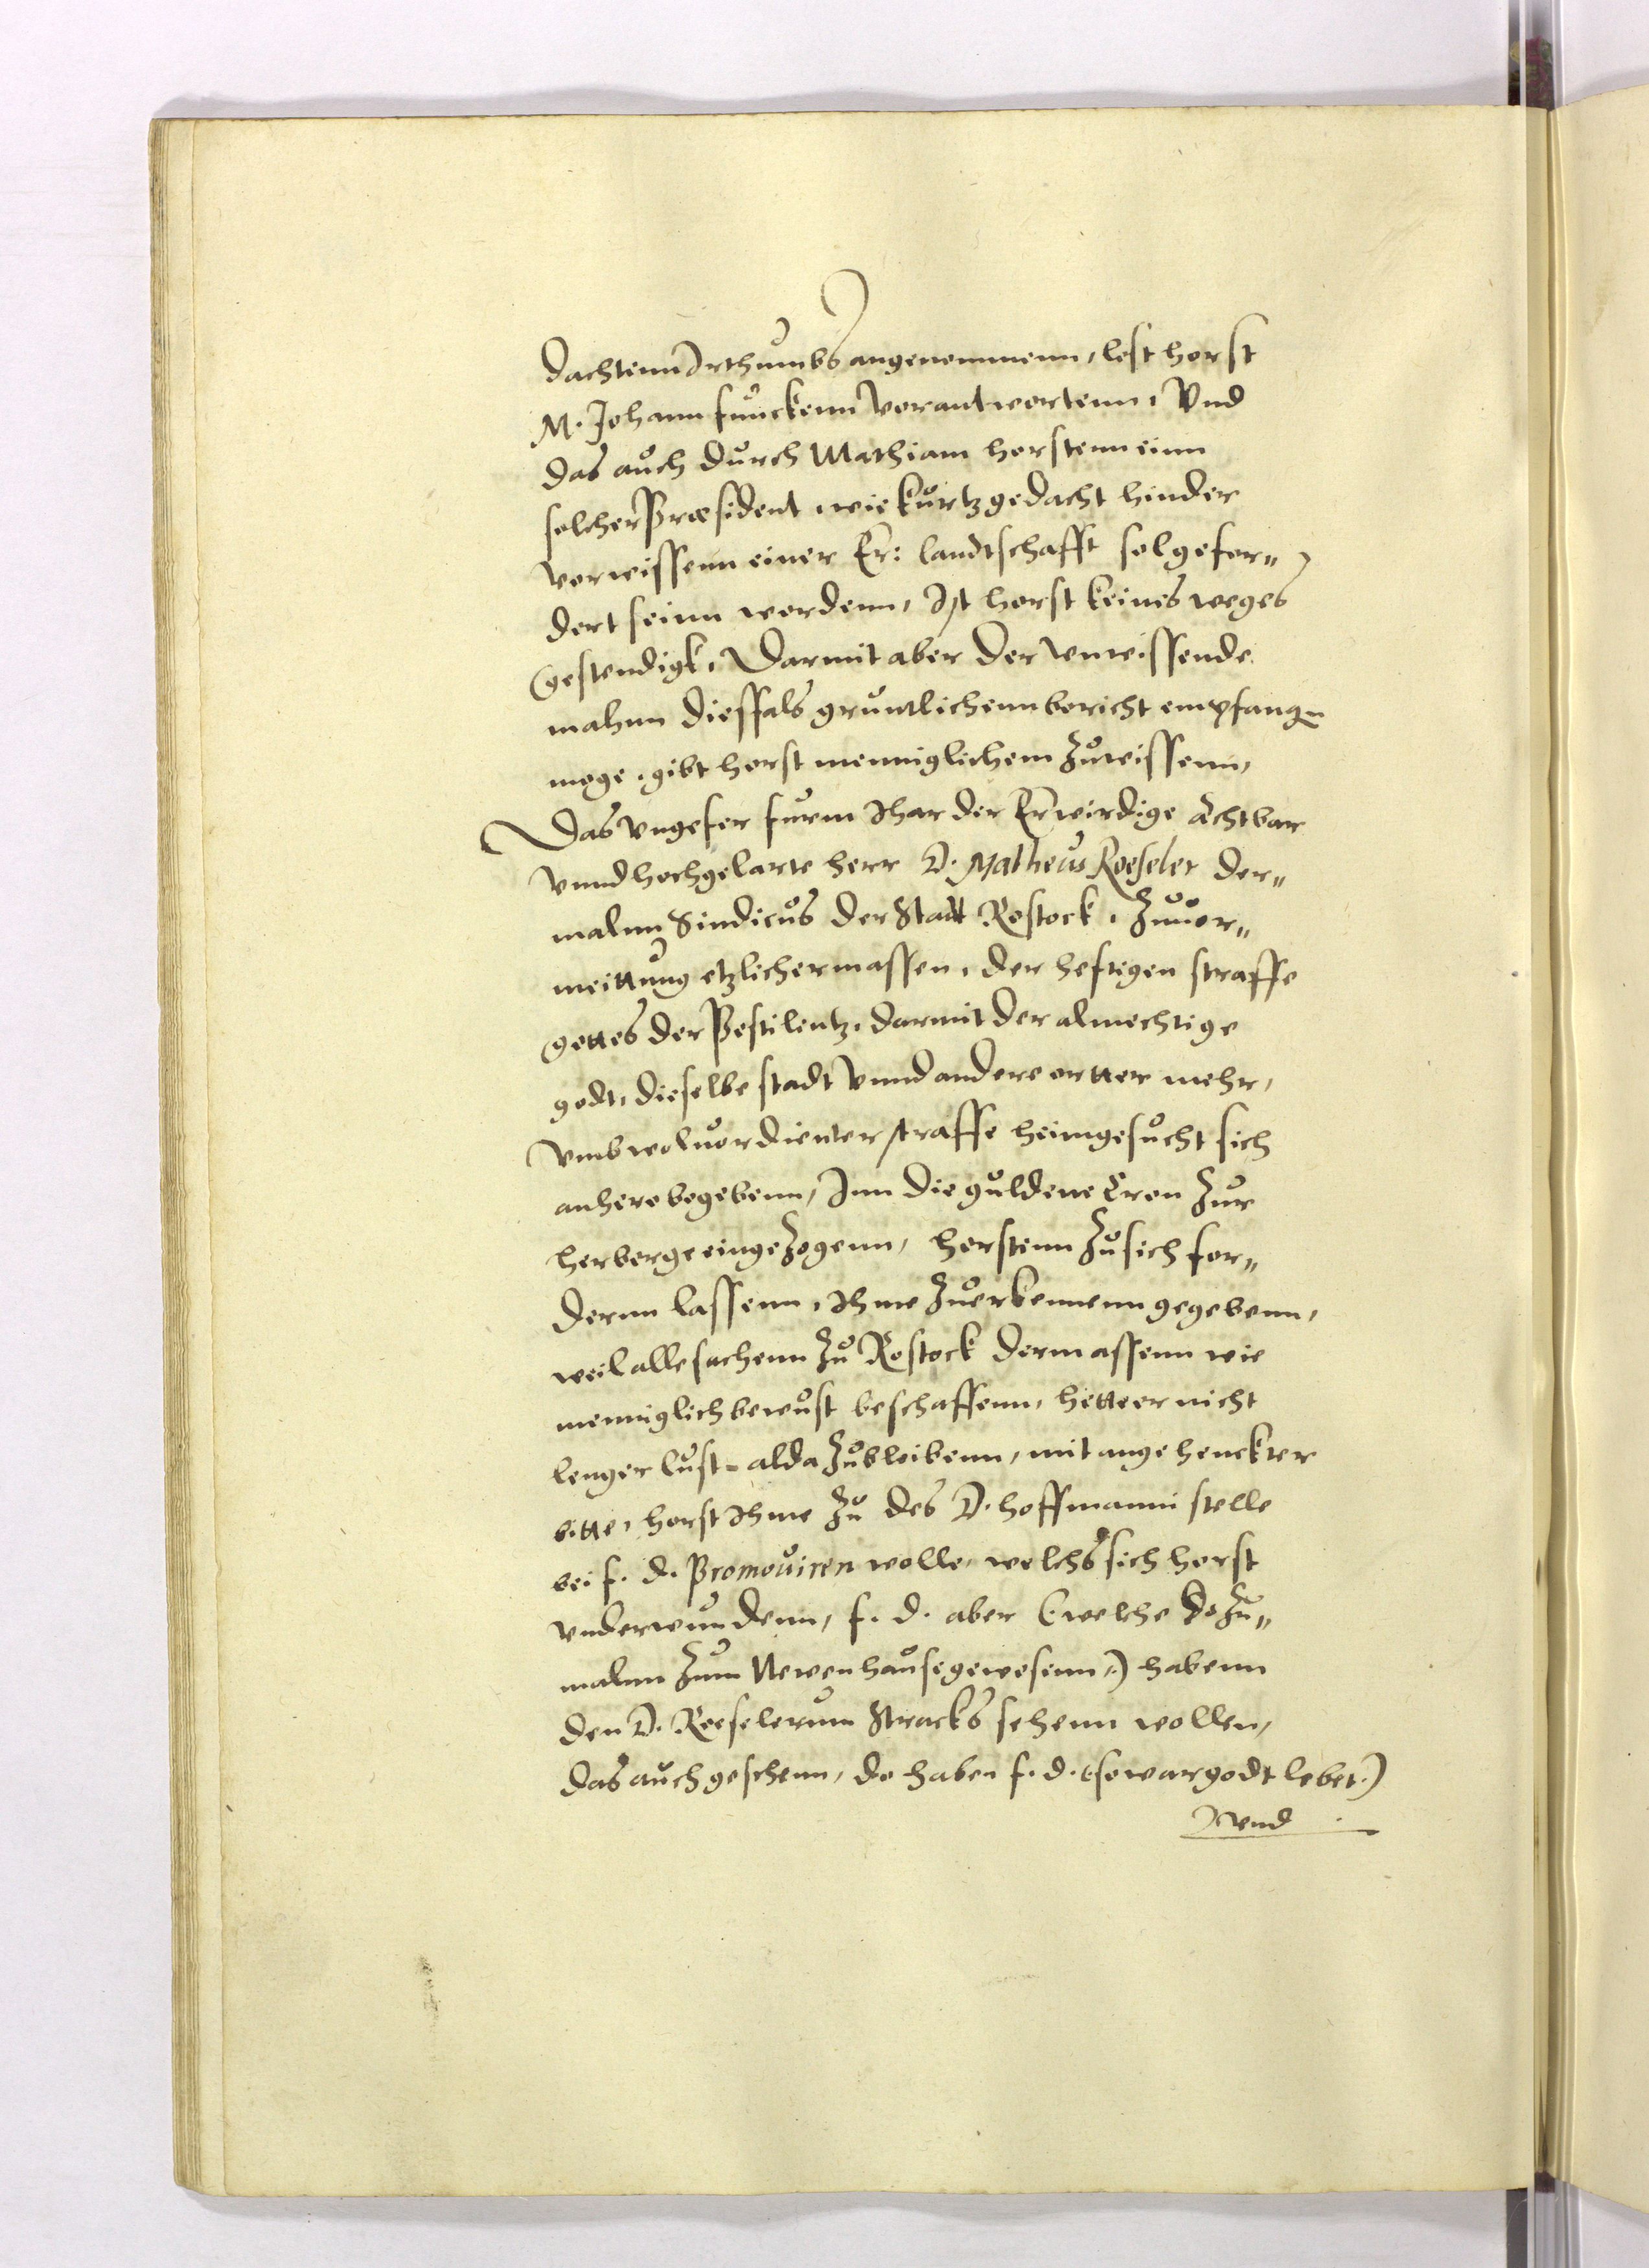 dachtenn Irthumbs angenommenn, lest horst
M. Johann funckenn verantwortenn, Vnd
das auch durch Mathiam horstenn einn
solcher Præsident, wie kurtz gedacht hinder
vorwissenn einer Er: landtschafft sol gefor„
dert seinn wordenn, Ist horst keines weges
gestendigk, Darmit aber der vnwissende
mahnn diessals gruntlichenn bericht empfangn
moge, gibt horst menniglichem zuwissenn,
Das vngefer furm Ihar der Erwirdige Achtbar
vnnd hochgelarte herr D. Matheus Roeseler der„
malnn Sindicus der Stadt Rostock, Zuuor„
meittung etzlichermassen, der heftigen straffe
gottes der Pestilentz, darmit der almechtige
godt, dieselbe stadt vnnd andere ortter mehr,
vmb woluordienter straffe heimgesucht sich
anhero begebenn, Inn die guldene Cron zur
herberge eingezogenn, horstenn zu sich for„
dernn lassenn, Ihme zuerkennenn gegebenn,
weil alle sachenn zu Rostock dermassenn wie
menniglich bewust beschaffenn, hette er nicht
lenger lust alda zubleibenn, mit angehenckter
bitte, horst Ihme zu des D. hoffmanni stelle
bei f. d. Promouiren wolle, welchs sich horst
vnderwundenn, f. d. aber (welche dozu„
malnn zum Newenhause gewesenn,) habenn
den D. Roeselerum Stracks sehenn wollen,
das auch geschenn, do haben f. d. (so war godt lebet)
vnd